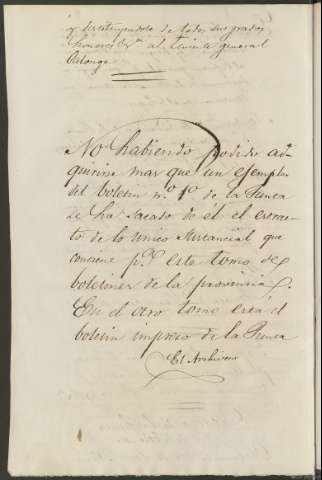 y destituyendolo de todos sus grados
honores &ª al teniente general
No habiendo podido ad-
quirirse mas que un ejemplar
del boletin n.º 1º de la
se ha sacado de él el extrac-
to de lo unico sustancial que
conviene p.ª este tomo de
boletines de la provincia.
En el otro tomo está el
boletin impreso de la
El Archivero